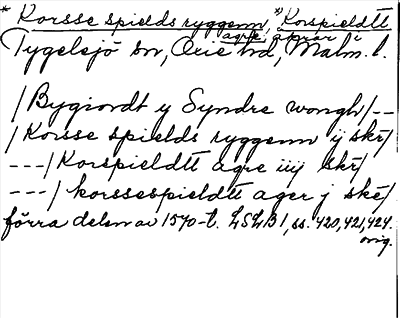 * Korsse spields ryggenn, *) Korspieldtt
agre, åkrar i
Tygelsjö sn, Oxie hd, Malm. l.
/Bygiordt y Syndre wongh/--
/Korsse spields ryggenn ij skr/
---/Korspieldtt agre iiij skr/
---/korssespieldtt ager j skr/
förra delen av 1570-t. LSLB 1, ss. 420, 421, 424.
orig.